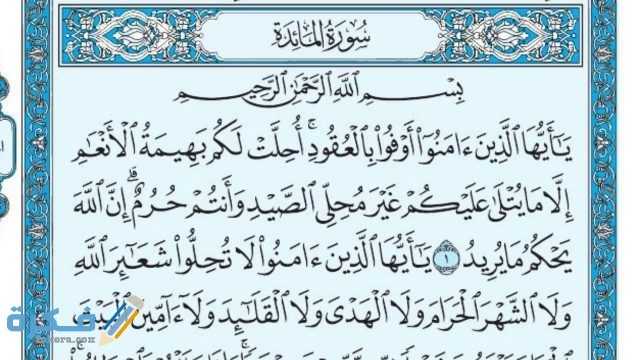 سُورَةُ المَائدَةِ
بِسْمِ اللَّهِ الرَّحْمَٰنِ الرَّحِيمِ
يَٰٓأَيُّهَا ٱلَّذِينَ ءَامَنُوٓاْ أَوۡفُواْ بِٱلۡعُقُودِۚ أُحِلَّتۡ لَكُم بَهِيمَةُ ٱلۡأَنۡعَٰمِ
إِلَّا مَا يُتۡلَىٰ عَلَيۡكُمۡ غَيۡرَ مُحِلِّي ٱلصَّيۡدِ وَأَنتُمۡ حُرُمٌۗ إِنَّ ٱللَّهَ
يَحۡكُمُ مَا يُرِيدُ ١ يَٰٓأَيُّهَا ٱلَّذِينَ ءَامَنُواْ لَا تُحِلُّواْ شَعَٰٓئِرَ ٱللَّهِ
وَلَا ٱلشَّهۡرَ ٱلۡحَرَامَ وَلَا ٱلۡهَدۡيَ وَلَا ٱلۡقَلَٰٓئِدَ وَلَآ ءَآمِّينَ ٱلۡبَيۡتَ
فكرة